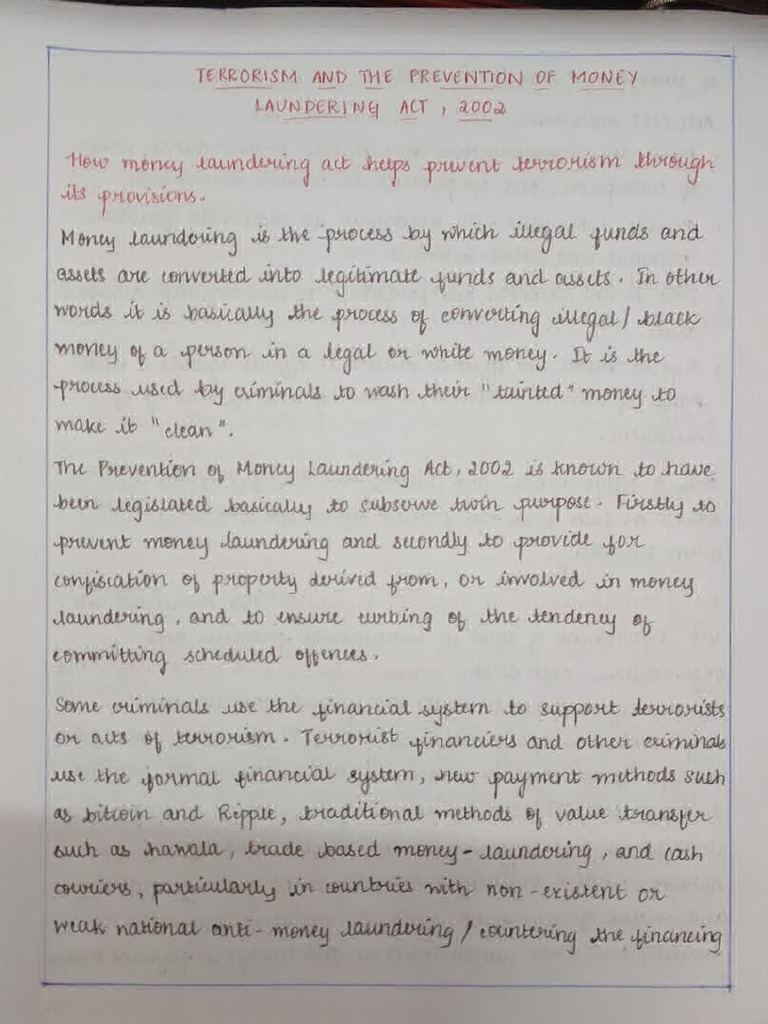 TERRORISM AND THE PREVENTION OF MONEY
LAUNDERING ACT, 2002
How money laundering act helps prevent terrorism through
its provisions.
Money laundering is the process by which illegal funds and
assets are converted into legitimate funds and assets. In other
words it is basically the process of converting illegal/black
money of a person in a legal or white money. It is the
process used by criminals to wash their "tainted" money to
make it "clean".
The Prevention of Money Laundering Act, 2002 is known to have
been legislated basically to subserve twin purpose. Firstly to
prevent money laundering and secondly to provide for
confiscation of property derived from, or involved in money
laundering, and to ensure curbing of the tendency of
committing scheduled offences.
Some criminals use the financial system to support terrorists
or acts of terrorism. Terrorist financiers and other criminals
use the formal financial system, new payment methods such
as bitcoin and Ripple, traditional methods of value transfer
such as hawala, trade based money-laundering, and cash
couriers, particularly in countries with non-existent or
weak national anti-money laundering/countering the financing